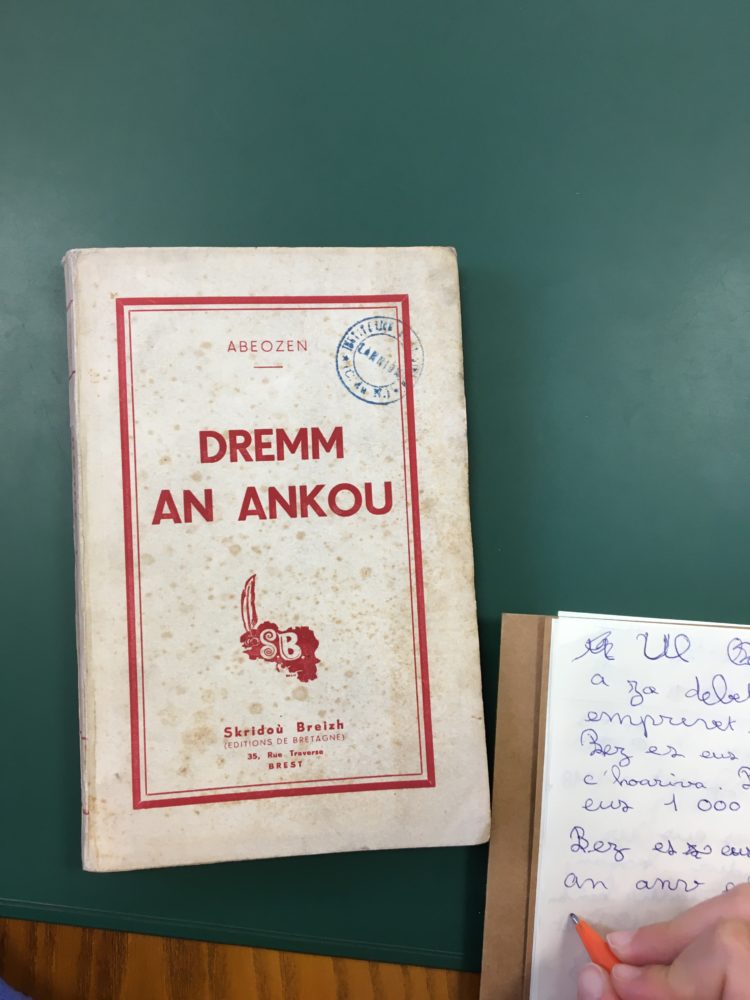 ABEOZEN
DREMM
AN ANKOU
S.B.
Skridoù Breizh
(EDITIONS DE BRETAGNE)
35, Rue Traverse
BREST
Ul
a za
empreret
Bez es eus
c'hoariva.
eus 1 000
Bez es eus
an anv